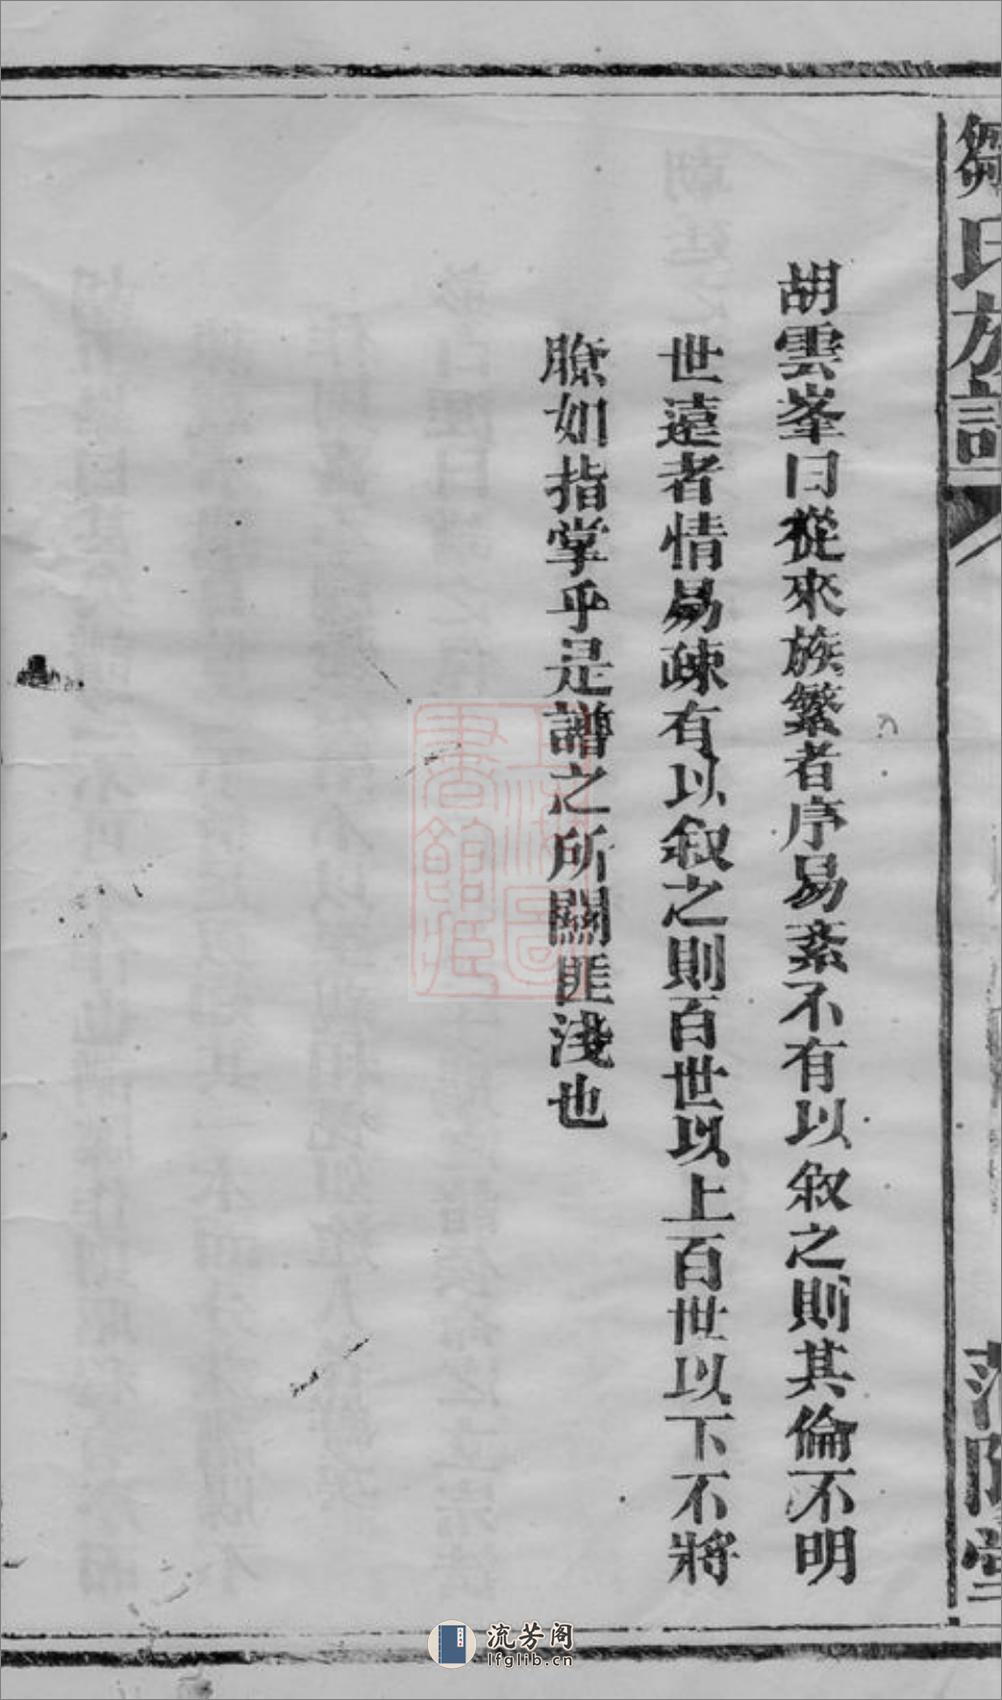 鄒氏族譜
范陽堂
胡雲峯曰從來族繁者序易紊不有以叙之則其倫不明
世遠者情易疎有以叙之則百世以上百世以下不將
瞭如指掌乎是譜之所關匪淺也
上海圖
書館藏
流芳阁
lfglib.cn